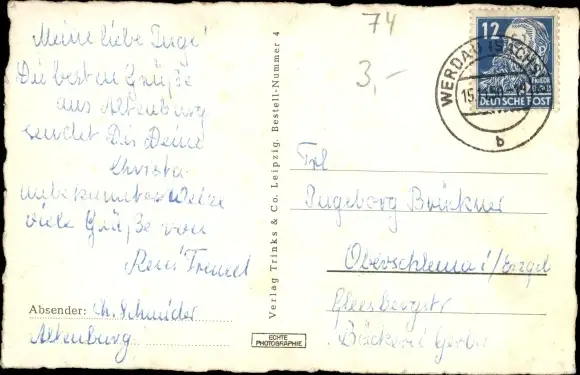 Meine liebe Inge!
Die besten Grüße
aus Altenburg
sendet Dir Deine
Christa
unbekannterweise
viele Grüße von
Absender: Ch. Schmider
Altenburg
Verlag Trinks & Co. Leipzig. Bestell-Nummer 4
ECHTE
PHOTOGRAPHIE
74
3,-
12
DEUTSCHE POST
WERDAU (SACHS)
b
Frl.
Ingeborg Brückner
Oberschlema i/Erzgeb
Gleesbergstr
Bäckerei Gerber